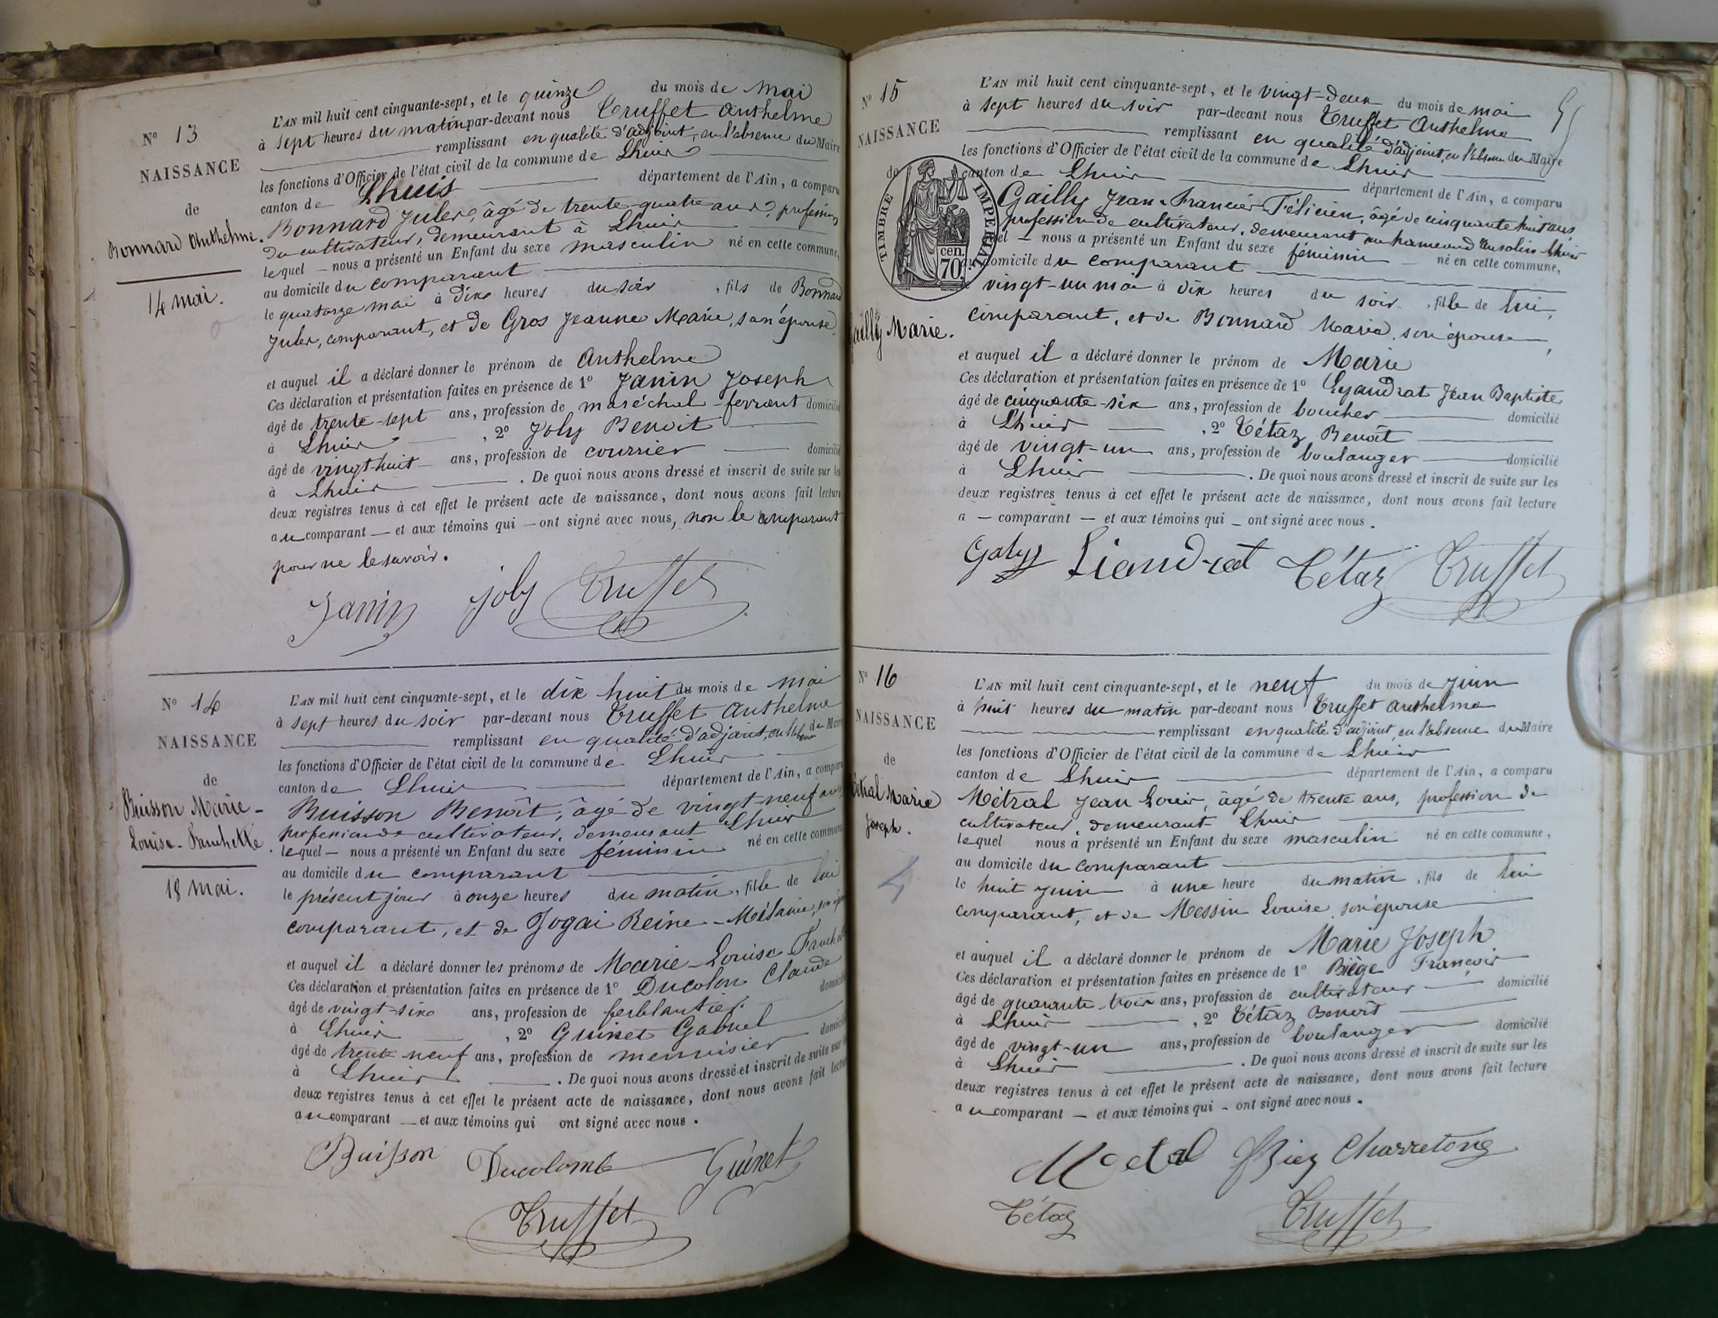 N° 13
NAISSANCE
de
Bonnard Anthelme.
14 mai.
L'AN mil huit cent cinquante-sept, et le quinze du mois de mai
à sept heures du matin par-devant nous Truffet Anthelme
remplissant en qualité d'adjoint, en l'absence du Maire
les fonctions d'Officier de l'état civil de la commune de Lhuis
canton de Lhuis département de l'Ain, a comparu
Bonnard Jules, âgé de trente-quatre ans, profession
de cultivateur, demeurant à Lhuis
lequel nous a présenté un Enfant du sexe masculin né en cette commune,
au domicile du comparant
le quatorze mai à dix heures du soir, fils de Bonnard
Jules, comparant, et de Gros Jeanne Marie, son épouse
et auquel il a déclaré donner le prénom de Anthelme
Ces déclaration et présentation faites en présence de 1° Janin Joseph
âgé de trente-sept ans, profession de maréchal-ferrant domicilié
à Lhuis, 2° Joly Benoit
âgé de vingt huit ans, profession de courrier domicilié
à Lhuis. De quoi nous avons dressé et inscrit de suite sur les
deux registres tenus à cet effet le présent acte de naissance, dont nous avons fait lecture
au comparant et aux témoins qui ont signé avec nous, non le comparant
pour ne le savoir.
Janin Joly Truffet
N° 14
NAISSANCE
de
Buisson Marie-
Louise-Franchette.
18 mai.
L'AN mil huit cent cinquante-sept, et le dix huit du mois de mai
à sept heures du soir par-devant nous Truffet Anthelme
remplissant en qualité d'adjoint, en l'absence du Maire
les fonctions d'Officier de l'état civil de la commune de Lhuis
canton de Lhuis département de l'Ain, a comparu
Buisson Benoît, âgé de vingt-neuf ans
profession de cultivateur, demeurant Lhuis
lequel nous a présenté un Enfant du sexe féminin né en cette commune
au domicile du comparant
le présent jour à onze heures du matin, fille de lui
comparant, et de Jogai Reine-Mélanie, son épouse
et auquel il a déclaré donner les prénoms de Marie-Louise Franchette
Ces déclaration et présentation faites en présence de 1° Ducolon Claude
âgé de vingt-six ans, profession de ferblantier domicilié
à Lhuis, 2° Guinet Gabriel
âgé de trente neuf ans, profession de menuisier domicilié
à Lhuis. De quoi nous avons dressé et inscrit de suite sur les
deux registres tenus à cet effet le présent acte de naissance, dont nous avons fait lecture
au comparant et aux témoins qui ont signé avec nous.
Buisson Ducolomb Guinet
Truffet
N° 15
NAISSANCE
de
Gailly Marie.
TIMBRE IMPERIAL
70 cen.
L'AN mil huit cent cinquante-sept, et le vingt-deux du mois de mai
à sept heures du soir par-devant nous Truffet Anthelme
remplissant en qualité d'adjoint, en l'absence du Maire
les fonctions d'Officier de l'état civil de la commune de Lhuis
canton de Lhuis département de l'Ain, a comparu
Gailly Jean-Francois-Félicien, âgé de cinquante huit ans
profession de cultivateur, demeurant au hameau Lhuis
lequel nous a présenté un Enfant du sexe féminin né en cette commune,
au domicile du comparant
le vingt-un mai à dix heures du soir, fille de lui,
comparant, et de Bonnard Maria, son épouse,
et auquel il a déclaré donner le prénom de Marie
Ces déclaration et présentation faites en présence de 1° Lyandrat Jean Baptiste
âgé de cinquante-six ans, profession de boucher domicilié
à Lhuis, 2° Tétaz Benoît
âgé de vingt-un ans, profession de boulanger domicilié
à Lhuis. De quoi nous avons dressé et inscrit de suite sur les
deux registres tenus à cet effet le présent acte de naissance, dont nous avons fait lecture
a comparant et aux témoins qui ont signé avec nous.
Galy Liandrat Tétaz Truffet
N° 16
NAISSANCE
de
Métral Marie
Joseph.
L'AN mil huit cent cinquante-sept, et le neuf du mois de juin
à huit heures du matin par-devant nous Truffet Anthelme
remplissant en qualité d'adjoint, en l'absence du Maire
les fonctions d'Officier de l'état civil de la commune de Lhuis
canton de Lhuis département de l'Ain, a comparu
Métral Jean Louis, âgé de trente ans, profession de
cultivateur, demeurant Lhuis
lequel nous a présenté un Enfant du sexe masculin né en cette commune,
au domicile du comparant
le huit juin à une heure du matin, fils de lui
comparant, et de Messin Louise, son épouse
et auquel il a déclaré donner le prénom de Marie Joseph
Ces déclaration et présentation faites en présence de 1° Biège François
âgé de quarante trois ans, profession de cultivateur domicilié
à Lhuis, 2° Tétaz Benoît
âgé de vingt-un ans, profession de boulanger domicilié
à Lhuis. De quoi nous avons dressé et inscrit de suite sur les
deux registres tenus à cet effet le présent acte de naissance, dont nous avons fait lecture
au comparant et aux témoins qui ont signé avec nous.
Metral Biez Charretong
Tétaz Truffet